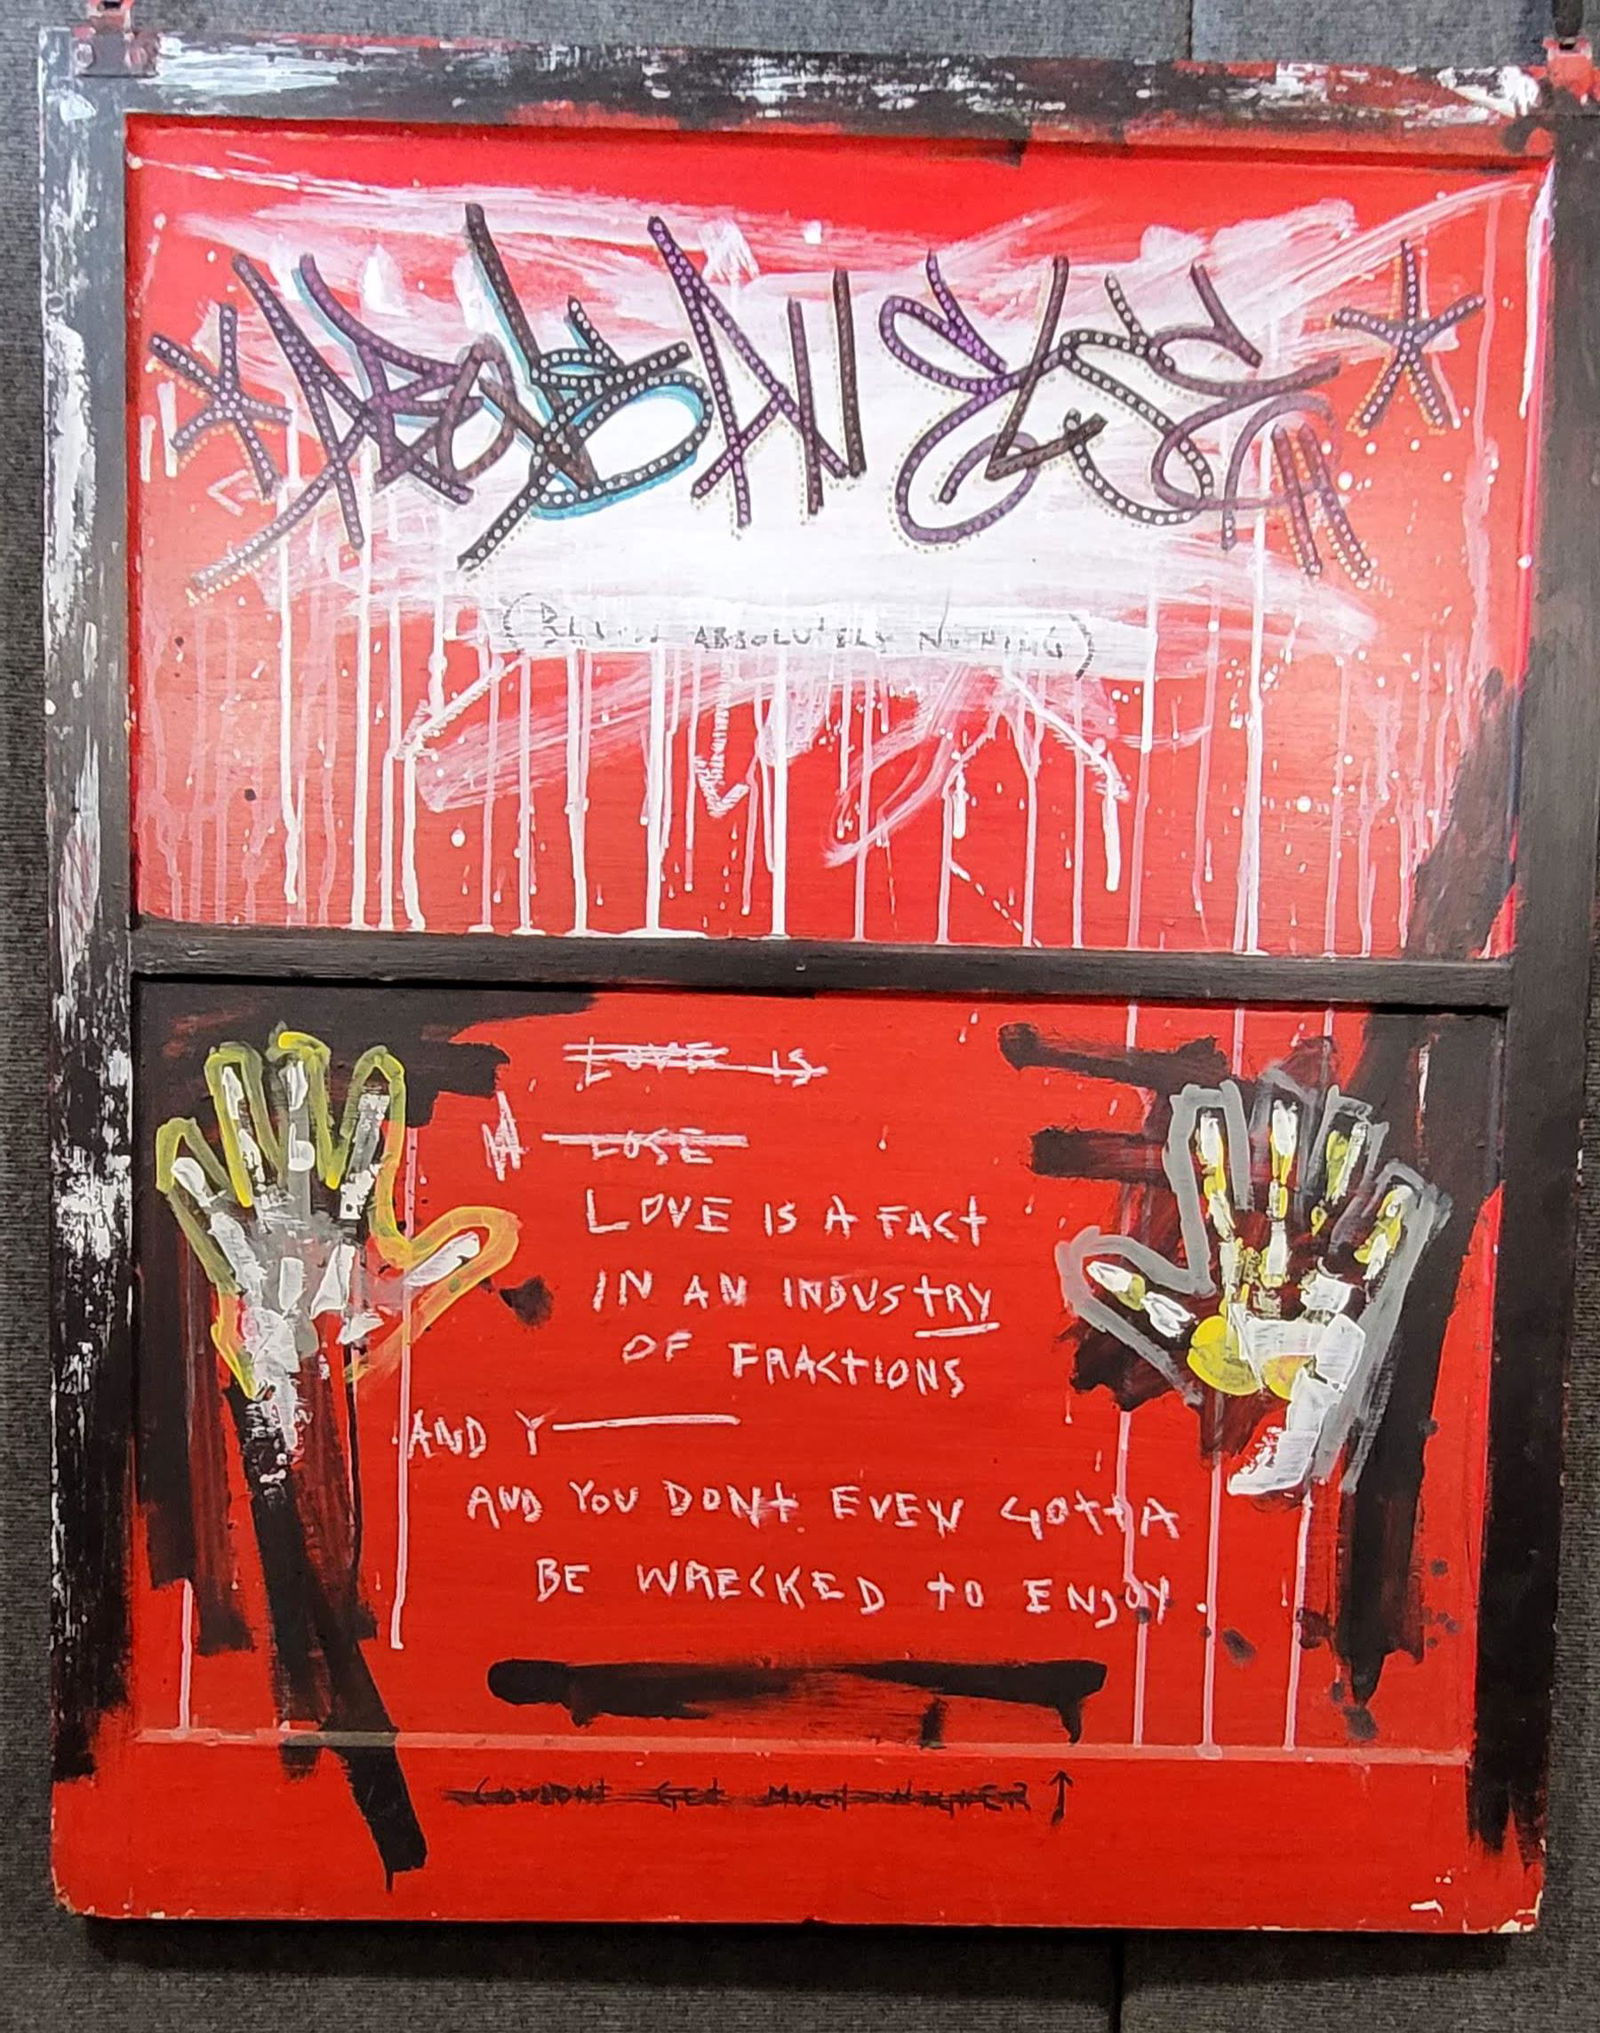 ABSOLUTELY NOTHING)
LOVE IS
LOSE
LOVE IS A FACT
IN AN INDUSTRY
OF FRACTIONS
AND Y
AND YOU DONT EVEN GOTTA
BE WRECKED TO ENJOY.
COULDNT GET MUCH HIGHER ↑